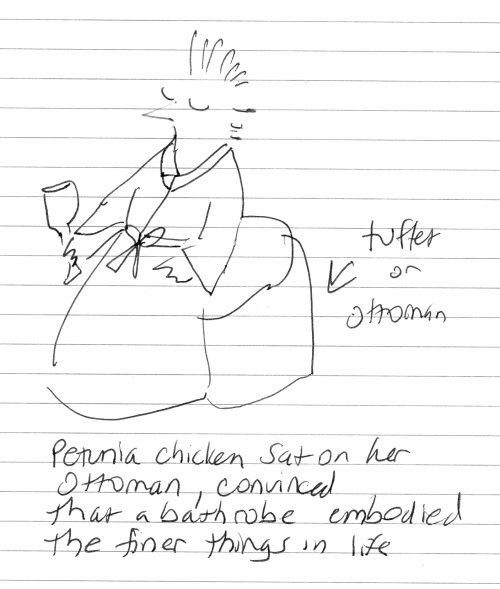 tuffet
or
ottoman
Petunia chicken sat on her
Ottoman, convinced
that a bathrobe embodied
the finer things in life